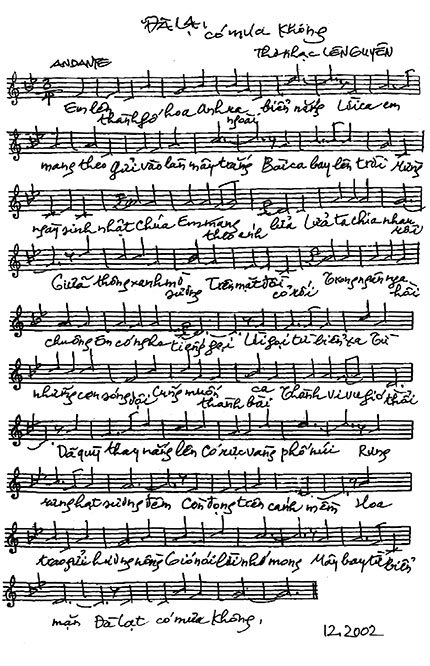 Đà Lạt
có mưa không
Thơ nhạc LÊ NGUYÊN
ANDANTE
Em lên thành phố hoa Anh ra ngoài biển nắng Lời ca em
mang theo gửi vào làn mây trắng Bài ca bay lên trời Mừng
ngày sinh nhật Chúa Em mang theo anh lửa Lửa ta chia nhau rồi
Giữa thông xanh mờ sương Trên mặt đồi cỏ rối Trong ngân nga hồi
chuông Em có nghe tiếng gọi Lời gọi từ biển xa Từ
những con sóng dội Cũng muốn ca thành bài Thành vi vu gió thổi
Dã quỳ thay nắng lên Có rực vàng phố núi Rưng
rưng hạt sương đêm Còn đọng trên cánh mềm Hoa
trao gửi hương nồng Gió nói lời nhớ mong Mây bay từ biển
mặn Đà Lạt có mưa không.
12.2002